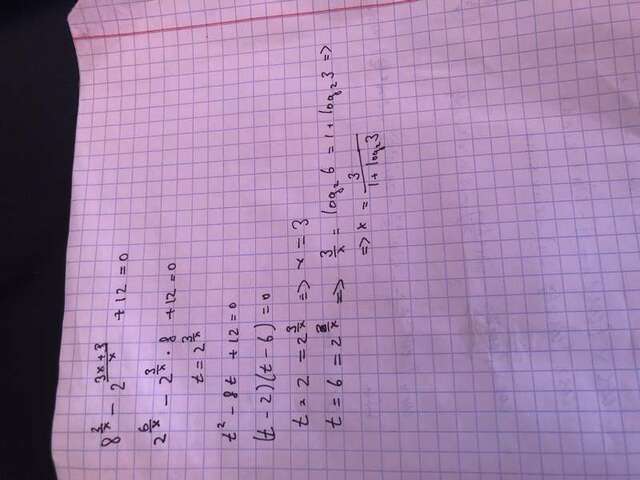 8^{2/x} - 2^{(3x+3)/x} + 12 = 0
2^{6/x} - 2^{3/x} · 8 + 12 = 0
t = 2^{3/x}
t² - 8t + 12 = 0
(t - 2)(t - 6) = 0
t = 2 = 2^{3/x} => x = 3
t = 6 = 2^{3/x} => 3/x = log₂ 6 = 1 + log₂ 3 =>
=> x = 3/(1 + log₂ 3)